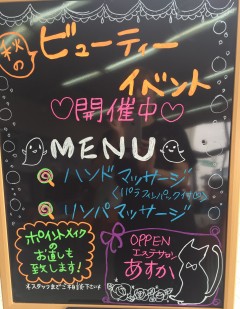 秋の
ビューティー
イベント
♡開催中♡
MENU
ハンドマッサージ
(パラフィンパック付)
リンパマッサージ
ポイントメイク
のお直しも
致します!
スタッフまで
OPPEN
エステサロン
あすか